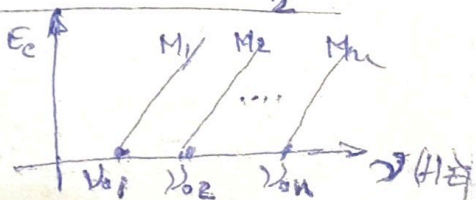 Ec
M1 M2 Mn
....
ν01 ν02 ν0n ν(Hz)